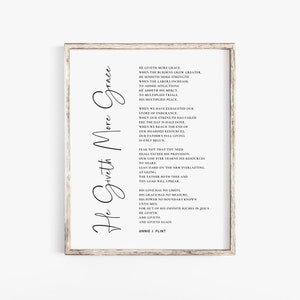 He Giveth More Grace
HE GIVETH MORE GRACE
WHEN THE BURDENS GROW GREATER,
HE SENDETH MORE STRENGTH
WHEN THE LABORS INCREASE;
TO ADDED AFFLICTIONS
HE ADDETH HIS MERCY,
TO MULTIPLIED TRIALS,
HIS MULTIPLIED PEACE.
WHEN WE HAVE EXHAUSTED OUR
STORE OF ENDURANCE,
WHEN OUR STRENGTH HAS FAILED
ERE THE DAY IS HALF DONE,
WHEN WE REACH THE END OF
OUR HOARDED RESOURCES,
OUR FATHER'S FULL GIVING
IS ONLY BEGUN.
FEAR NOT THAT THY NEED
SHALL EXCEED HIS PROVISION,
OUR GOD EVER YEARNS HIS RESOURCES
TO SHARE;
LEAN HARD ON THE ARM EVERLASTING,
AVAILING;
THE FATHER BOTH THEE AND
THY LOAD WILL UPBEAR.
HIS LOVE HAS NO LIMITS,
HIS GRACE HAS NO MEASURE,
HIS POWER NO BOUNDARY KNOWN
UNTO MEN;
FOR OUT OF HIS INFINITE RICHES IN JESUS
HE GIVETH,
AND GIVETH,
AND GIVETH AGAIN
ANNIE J. FLINT